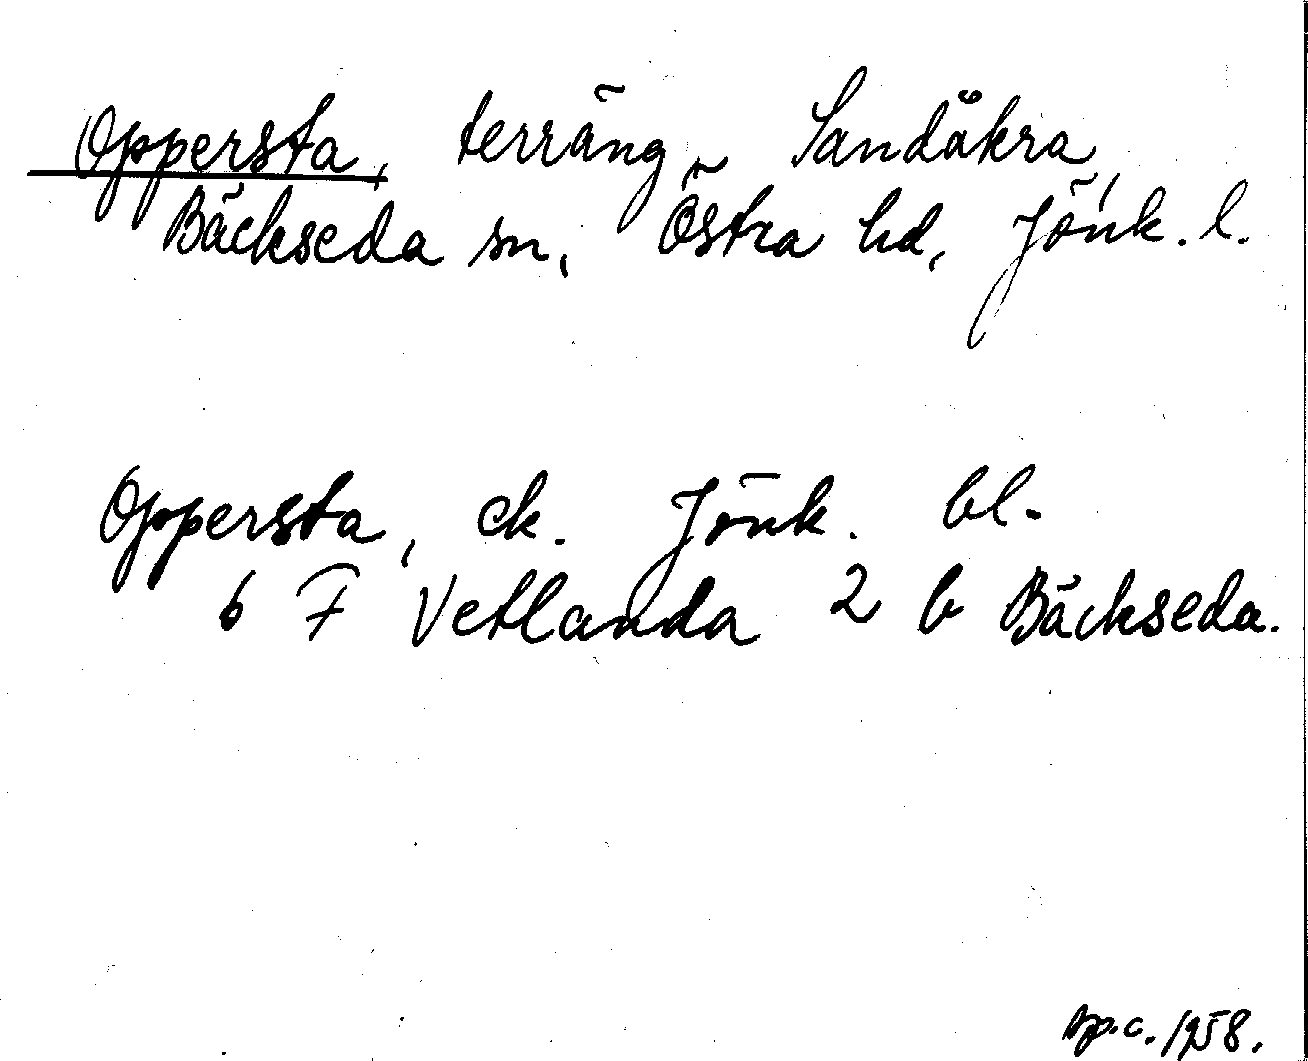 Oppersta, terräng, Sandåkra,
Bäckseda sn, Östra hd, Jönk. l.
Oppersta, ek. Jönk. bl.
6 F Vetlanda 2 b Bäckseda.
1958.